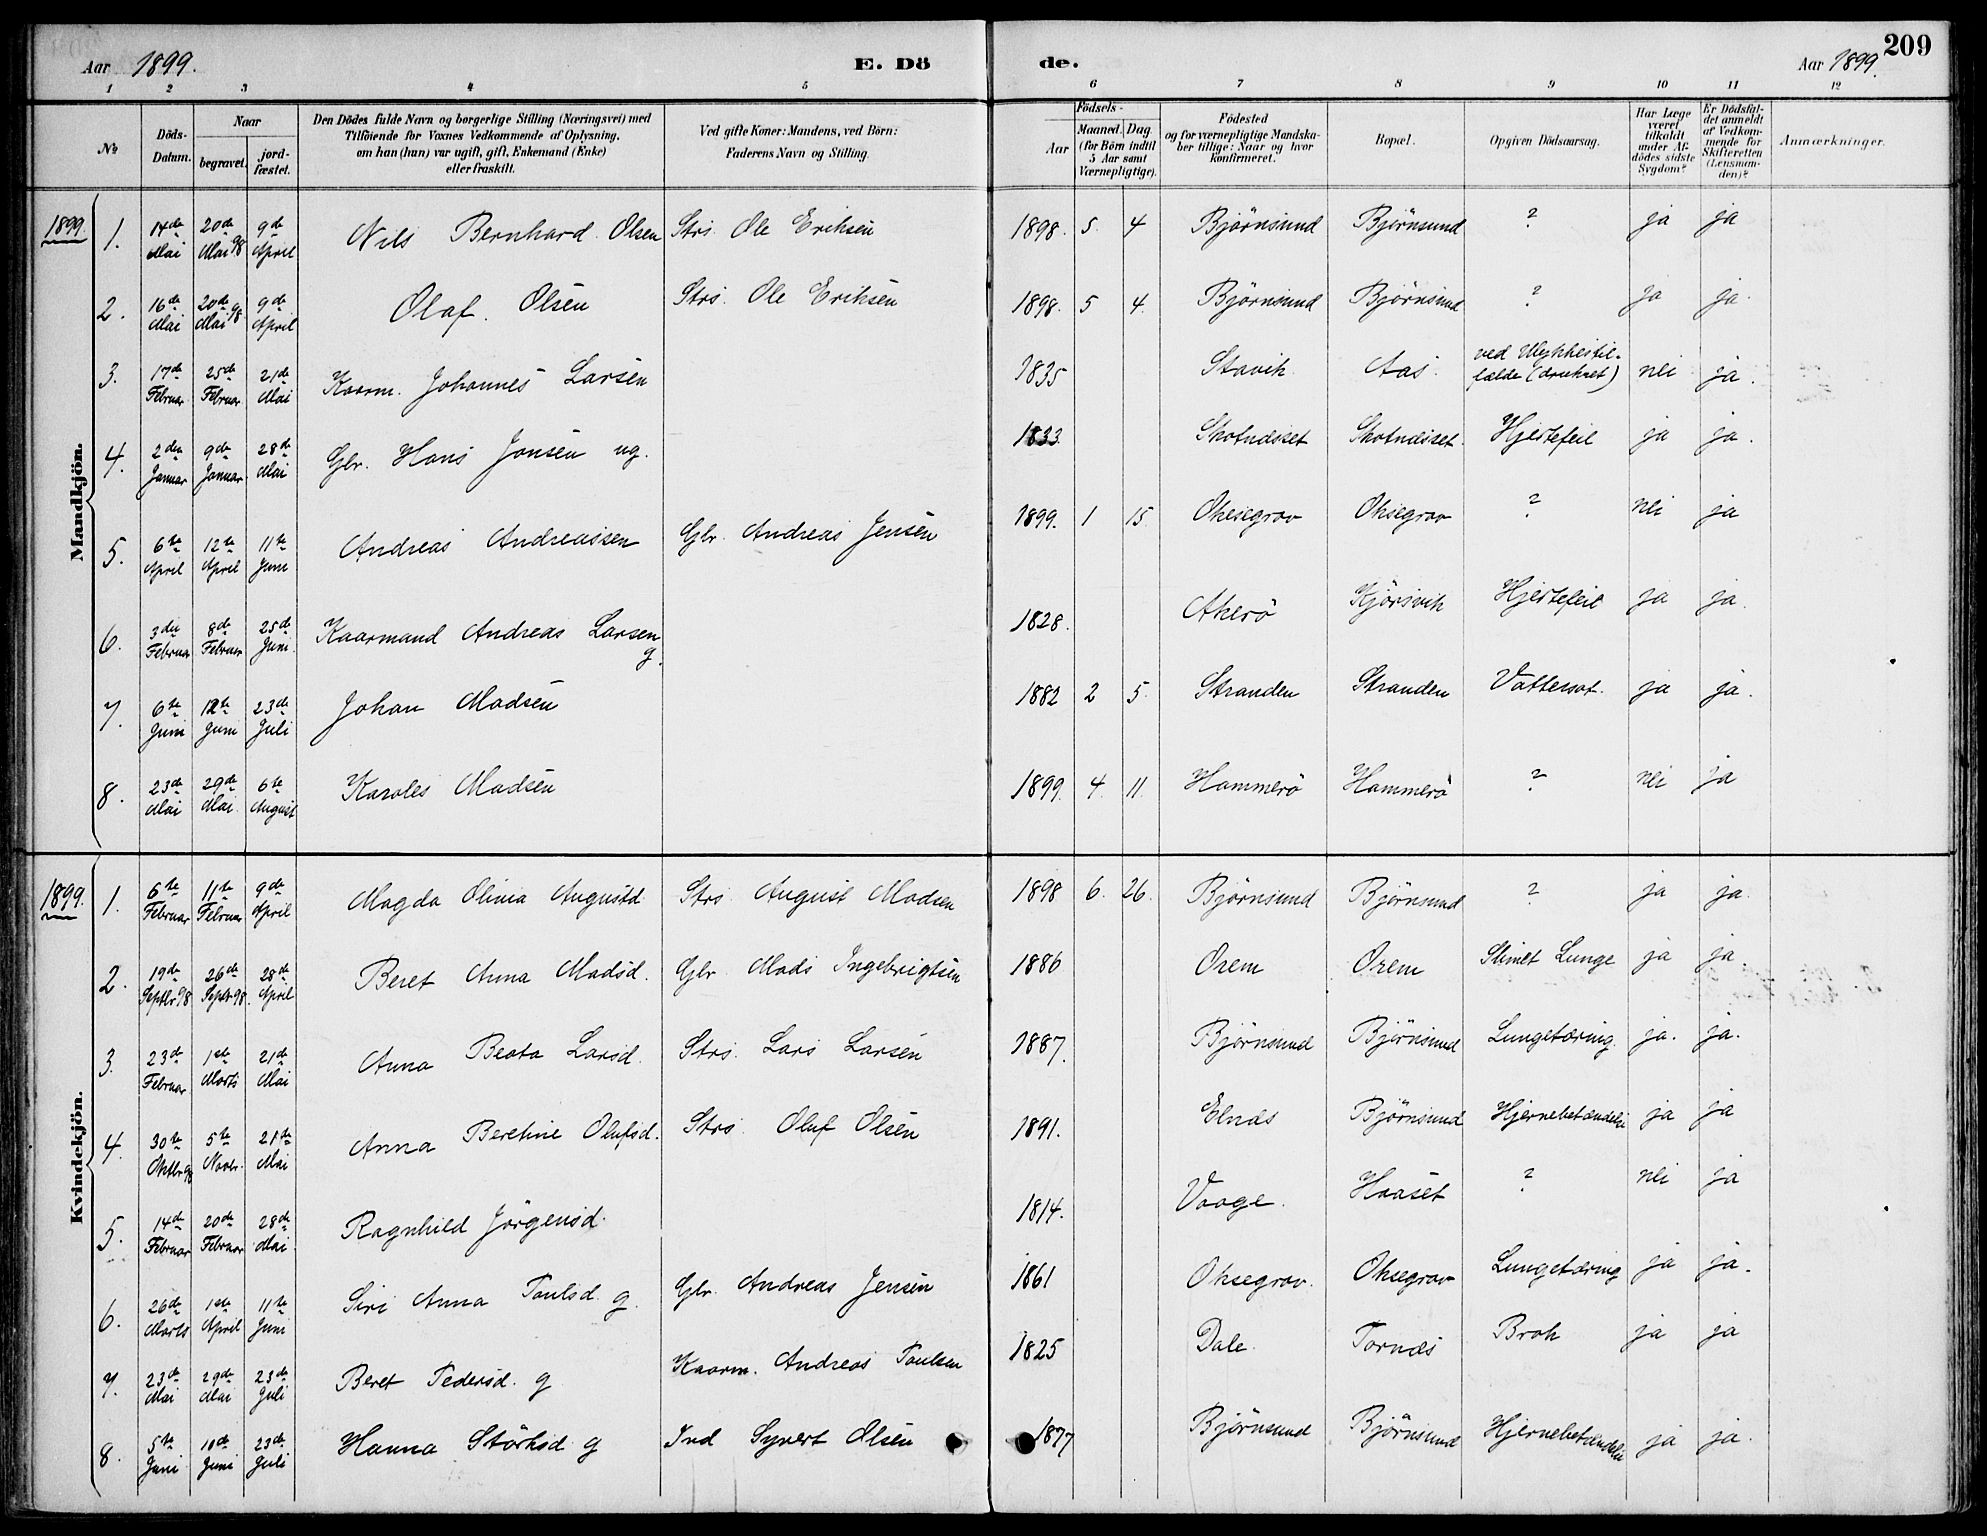 Aar 1899. E. Dö de. Aar 1899. 209
1 2 3 4 5 6 7 8 9 10 11 12
No Döds-Datum. Naar begravet. jord-fæstet. Den Dödes fulde Navn og borgerlige Stilling (Næringsvei) med Tilföiende for Voxnes Vedkommende af Oplysning, om han (hun) var ugift, gift, Enkemand (Enke) eller fraskilt. Ved gifte Koner: Mandens, ved Börn: Faderens Navn og Stilling. Födsels- Aar Maaned. Dag (for Börn indtil 5 Aar samt Værnepligtige). Födested og for værnepligtige Mandskaber tillige: Naar og hvor konfirmeret. Bopæl. Opgiven Dödsaarsag. Har Læge været tilkaldt under Afdödes sidste Sygdom? Er Dödsfaldet anmeldt af Vedkommende for Skifteretten (Lensmanden)? Anmærkninger.
Mandkjön.
1899 1. 14de Mai 20de Mai 98 9de April Nils Bernhard Olsen Strs. Ole Eriksen 1898. 5. 4 Bjørnsund Bjørnsund ? ja ja
2. 16de Mai 20de Mai 98 9de April Olaf Olsen Strs. Ole Eriksen 1898. 5 4. Bjørnsund Bjørnsund ? ja ja.
3. 17de Februar 25de Februar 21de Mai Kaarm. Johannes Larsen 1835 Stavik Aas. ved Ulykkestilfælde (druknet) nei ja.
4. 2den Januar 9de Januar 28de Mai Gbr. Hans Jonsen ug. 1833. Skotndset Skotndset. Hjertefeil ja ja.
5. 6te April 12te April 11te Juni Andreas Andreassen Gbr. Andreas Jensen 1899. 1 15. Oksegrov Oksegrov ? nei ja
6. 3den Februar 8de Februar 25de Juni Kaarmand Andreas Larsen g. 1828. Akerö Kjörsvik Hjertefeil ja ja.
7. 6te Juni 12te Juni 23de Juli Johan Madsen 1882 2 5. Stranden Stranden Vattersot. ja ja.
8. 23de Mai 29de Mai. 6te August Karoles Madsen 1899. 4. 11. Hammerö Hammerö ? nei ja
Kvindekjön.
1899. 1. 6te Februar 11te Februar 9de April Magda Olivia Augustd. Strs. August Madsen 1898 6. 26. Bjørnsund Bjørnsund ? ja ja.
2. 19de Septbr 98 26de Septbr 98. 28de April Beret Anna Madsd. Gbr. Mads Ingebrigtsen 1886 Orem Orem Slimet Lunge ja ja.
3. 23de Februar 1ste Marts 21de Mai Anna Beata Larsd. Strs. Lars Larsen 1887. Bjørnsund Bjørnsund Lungetæring. ja. ja.
4. 30te Oktbr 98 5te Novbr. 21de Mai Anna Beretine Olufsd. Strs. Oluf Olsen 1891. Elnæs Bjørnsund Hjernebetændelse ja ja
5. 14de Februar 20de Februar 28de Mai. Ragnhild Jörgensd. 1814. Vaage. Haaset ? nei ja
6. 26de Marts 1ste April 11te Juni Siri Anna Paulsd. g. Gbr. Andreas Jensen 1861 Oksegrov. Oksegrov Lungetæring ja ja.
7. 23de Mai 29de Mai 23de Juli Beret Pedersd. g Kaarm. Andreas Paulsen 1825 Dale. Tornæs Brok ja ja
8. 5te Juni 10de Juni 23de Juli Hanna Störksd. g Ind Syvert Olsen 1877 Bjørnsund Bjørnsund Hjernebetændelse ja ja.